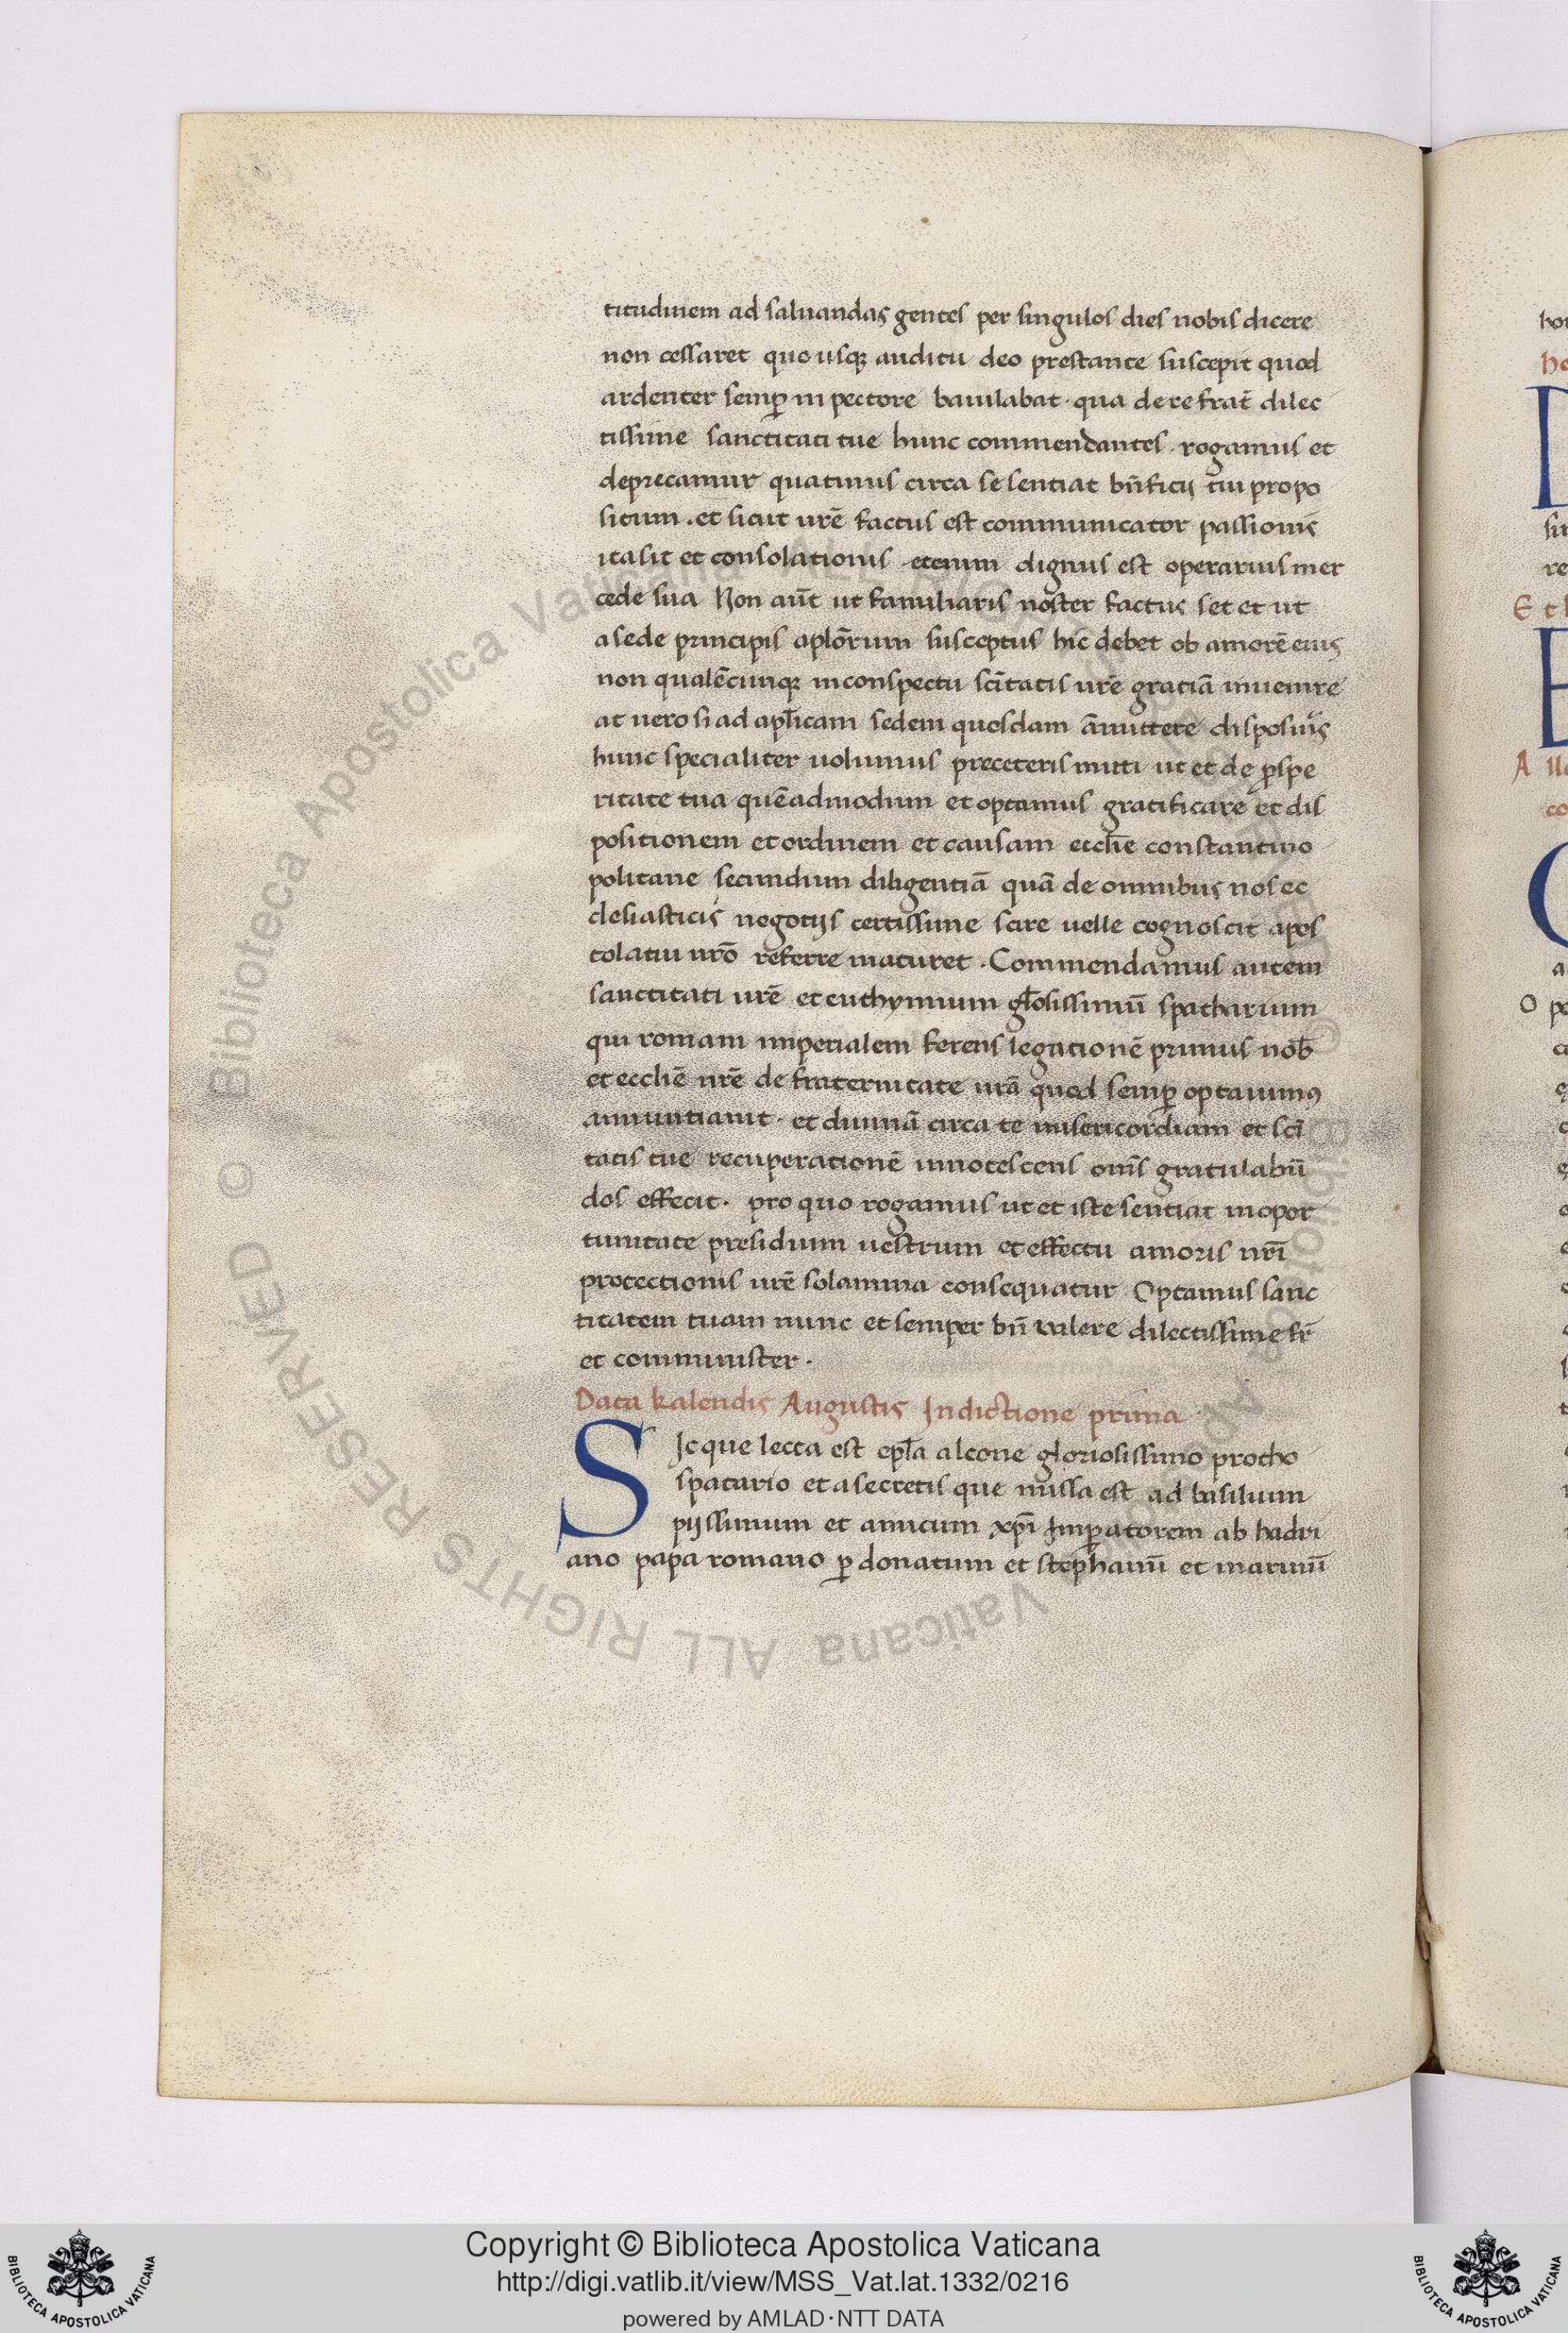 titudinem ad saluandas gentes per singulos dies nobis dicere
non cessaret quo usqꝫ auditu deo prestante suscepit quod
ardenter semꝑ in pectore baiulabat · qua de re frat̄ dilec
tissime sanctitati tue hunc commendantes . rogamus et
deprecamur quatinus circa se sentiat bn̄ficij tui propo
situm . et sicut ur̄e factus est communicator passionis
ita sit et consolationis etenim dignus est operarius mer
cede sua Non aūt ut familiaris noster factus set et ut
a sede principis aplōrum susceptus hic debet ob amorē eius
non qualēcunqꝫ in conspectu sc̄itatis ur̄e gratiā inuenire
at uero si ad apl̄icam sedem quosdam āmittere disposuīs
hunc specialiter uolumus pre ceteris mitti ut et de ꝓspe
ritate tua quēadmodum et optamus gratificare et dis
positionem et ordinem et causam eccl̄ie constantino
politane secundum diligentiā quā de omnibus nos ec
clesiasticis negotijs certissime scire uelle cognoscit apos
tolatui nr̄o referre maturet . Commendamus autem
sanctitati ur̄e et euthymium gl̄osissimū spatharium
qui romam imperialem ferens legationē primus nob̄
et eccliē nr̄e de fraternitate ur̄a quod semꝑ optauimꝰ
annuntiauit · et diuinā circa te misericordiam et sc̄i
tatis tue recuperationē innotescens om̄s gratulabū
dos effecit . pro quo rogamus ut et iste sentiat in opor
tunitate presidium uestrum et effectu amoris nr̄i
protectionis ur̄e solamina consequatur Optamus sanc
titatem tuam nunc et semper bn̄ ualere dilectissime fr̄
et comminister .
Data kalendis Augustis Indictione prima
SIcque lecta est epl̄a a leone gloriosissimo protho
spatario et a secretis que missa est ad basilium
pijssimum et amicum xp̄i Imꝑatorem ab hadri
ano papa romano ꝑ donatum et stephanū et marinū
© Biblioteca Apostolica Vaticana ALL RIGHTS RESERVED
Copyright © Biblioteca Apostolica Vaticana
http://digi.vatlib.it/view/MSS_Vat.lat.1332/0216
powered by AMLAD·NTT DATA
BIBLIOTECA APOSTOLICA VATICANA
BIBLIOTECA APOSTOLICA VATICANA